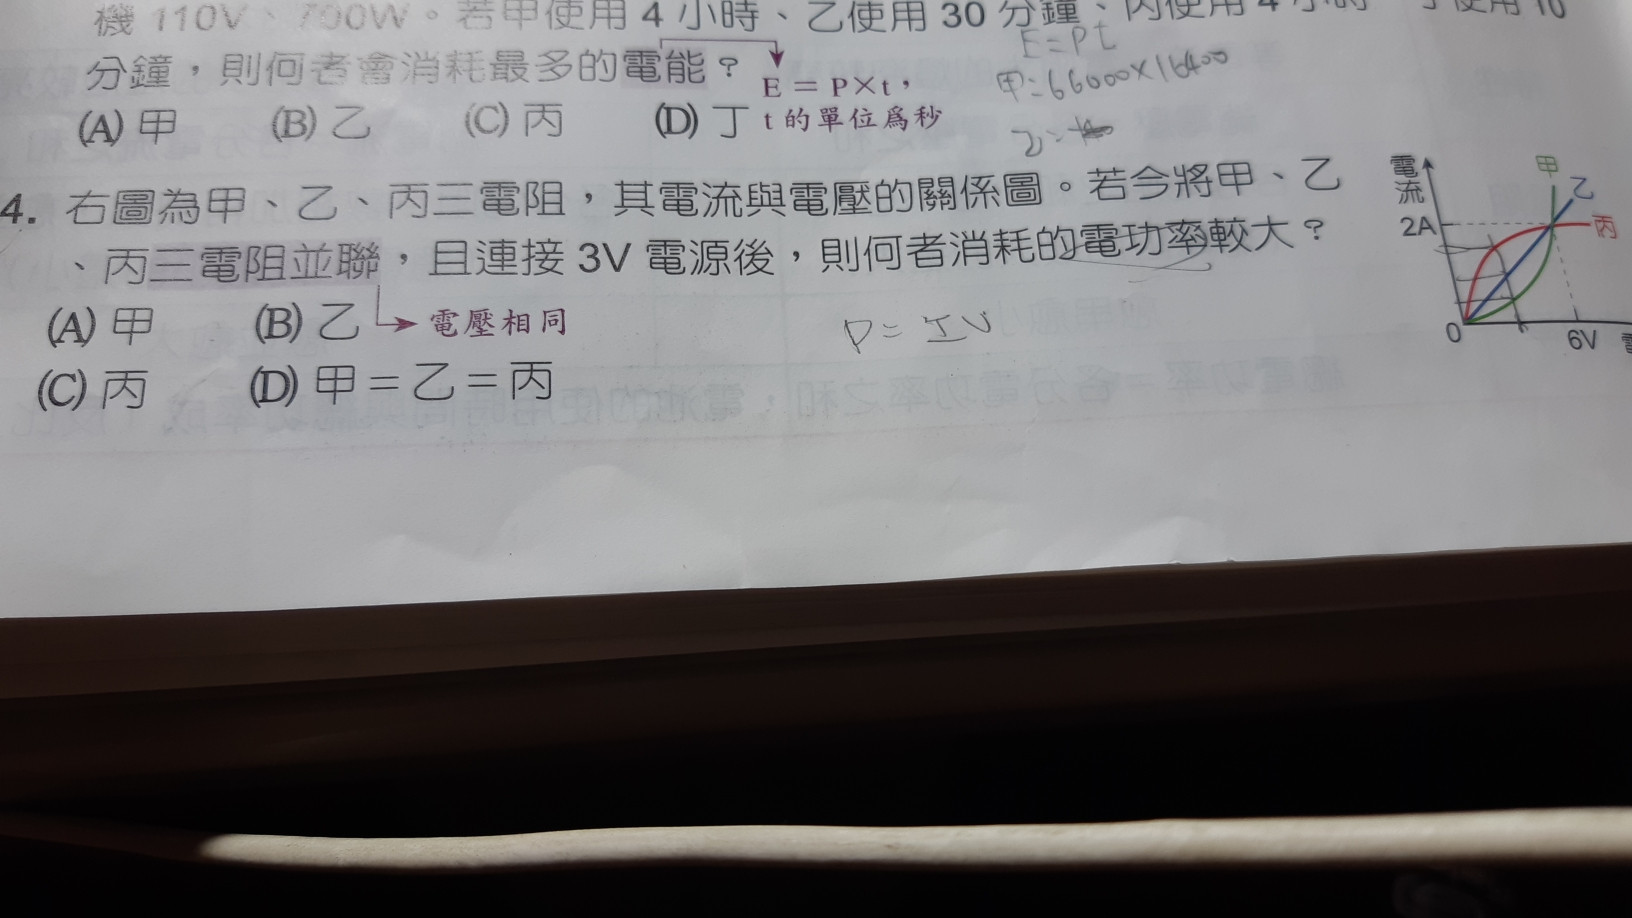 機 110V、700W。若甲使用 4 小時、乙使用 30 分鐘、丙使用 4 小時、丁使用 10
分鐘，則何者會消耗最多的電能？
E = P×t，
t 的單位為秒
(A) 甲 (B) 乙 (C) 丙 (D) 丁
E=Pt
甲=66000×16400
乙=
4. 右圖為甲、乙、丙三電阻，其電流與電壓的關係圖。若今將甲、乙
、丙三電阻並聯，且連接 3V 電源後，則何者消耗的電功率較大？
(A) 甲 (B) 乙
電壓相同
(C) 丙 (D) 甲＝乙＝丙
P = IV
電流
2A
0
6V
甲
乙
丙